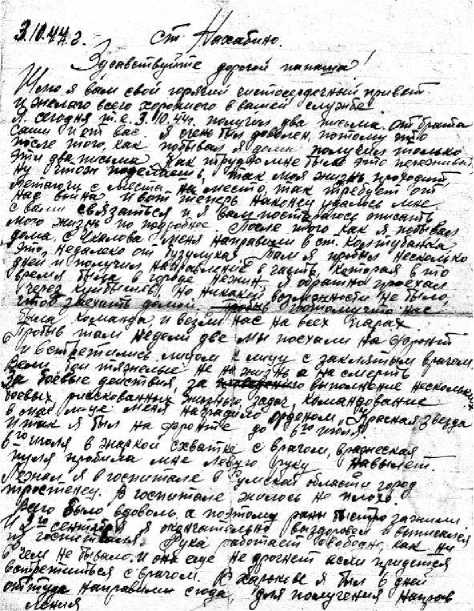 3.10.44 г. ст. Нахабино.
Здравствуйте дорогой папаша!
Шлю я вам свой горячий чистосердечный привет
и желаю всего хорошего в вашей службе!
Я сегодня т.е. 3.10.44. получил два письма от брата
Саши и от вас. Я очень был доволен, потому что
после того, как побывал я дома получил только
эти два письма. Как трудно мне было это
Ну что ж поделаешь, так моя жизнь проходит
с места на место, так требует от
нас война. И вот теперь наконец удалось мне
с вами связаться и я вам постараюсь описать
мою жизнь по подробнее. После того как я побывал
дома, с Чкалова меня направили в ст. Колтубанка,
это недалеко от Бузулука. Там я пробыл несколько
дней и получил направление в часть, которая в то
время была в городе Нежин, я обратно проехал
через Куйбышев, но никакой возможности не было,
чтоб заехать домой потому что нас
была команда и везли нас на всех парах.
Пробыв там недели две мы поехали на фронт
и встретились лицом к лицу с заклятым врагом.
Вели бои тяжелые не на жизнь а на смерть
За боевые действия, за выполнение нескольких
боевых рискованных жизнью задач, командование
в мае м-це меня наградило орденом "Красная звезда"
И так я был на фронте до 6го июля.
6го июля в жаркой схватке с врагом, вражеская
пуля пробила мне левую руку навылет.
Лежал я в госпитале в Сумской области город
В госпитале жилось не плохо
Всего было вдоволь, а поэтому раны быстро зажили.
И сентября я окончательно выздоровел и выписался
из госпиталя. Рука работает свободно, как ни
в чем не бывало, и она еще не дрогнет если придется
встретиться с врагом. В Харькове я был дней
оттуда направили сюда, для получения направ
ления